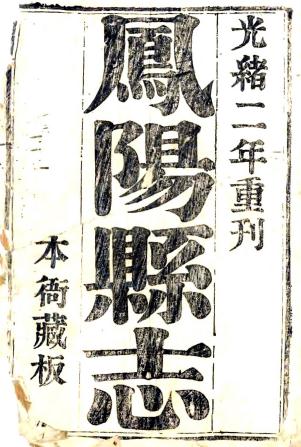 光緒二年重刊
鳳陽縣志
本衙藏板